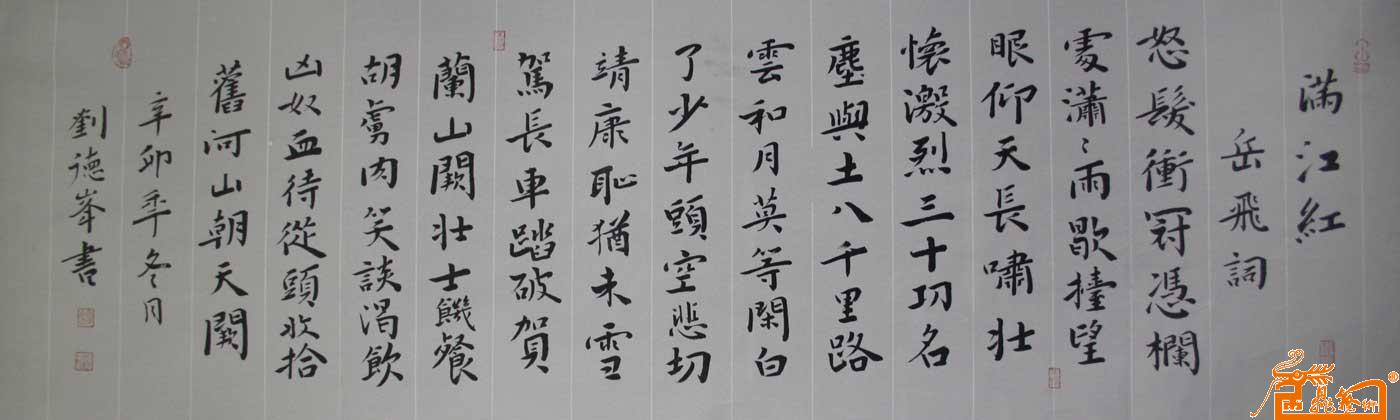 滿江紅
岳飛詞
怒髮衝冠憑欄
處瀟〻雨歇擡望
眼仰天長嘯壯
懷激烈三十功名
塵與土八千里路
雲和月莫等閑白
了少年頭空悲切
靖康恥猶未雪
駕長車踏破賀
蘭山闕壯士饑餐
胡虜肉笑談渴飲
凶奴血待從頭收拾
舊河山朝天闕
辛卯年冬月
劉德峯書